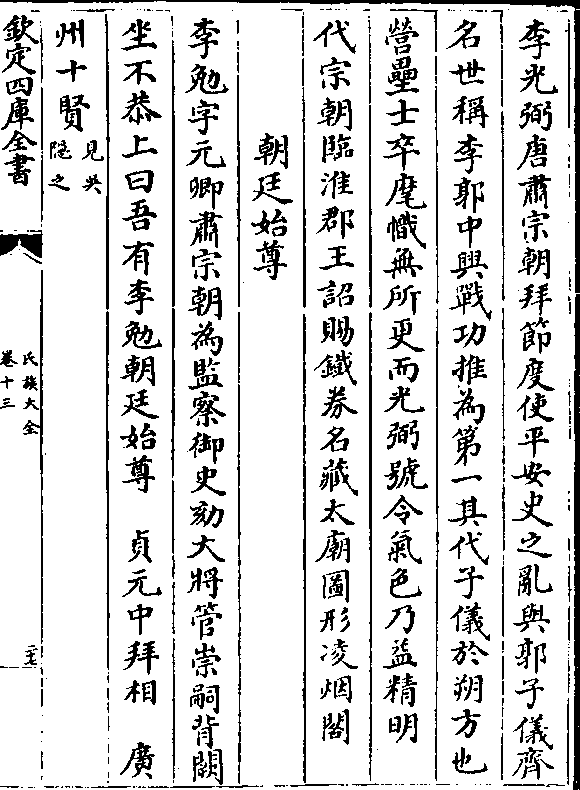 李光弼唐肅宗朝拜節度使平安史之亂與郭子儀齊
名世稱李郭中興戰功推為第一其代子儀於朔方也
營壘士卒麾幟無所更而光弼號令氣色乃益精明
代宗朝臨淮郡王詔賜鐵券名藏太廟圖形凌烟閣
朝廷始尊
李勉字元卿肅宗朝為監察御史劾大將管崇嗣背闕
坐不恭上曰吾有李勉朝廷始尊　貞元中拜相　廣
州十賢見吳隱之
欽定四庫全書
氏族大全
卷十三